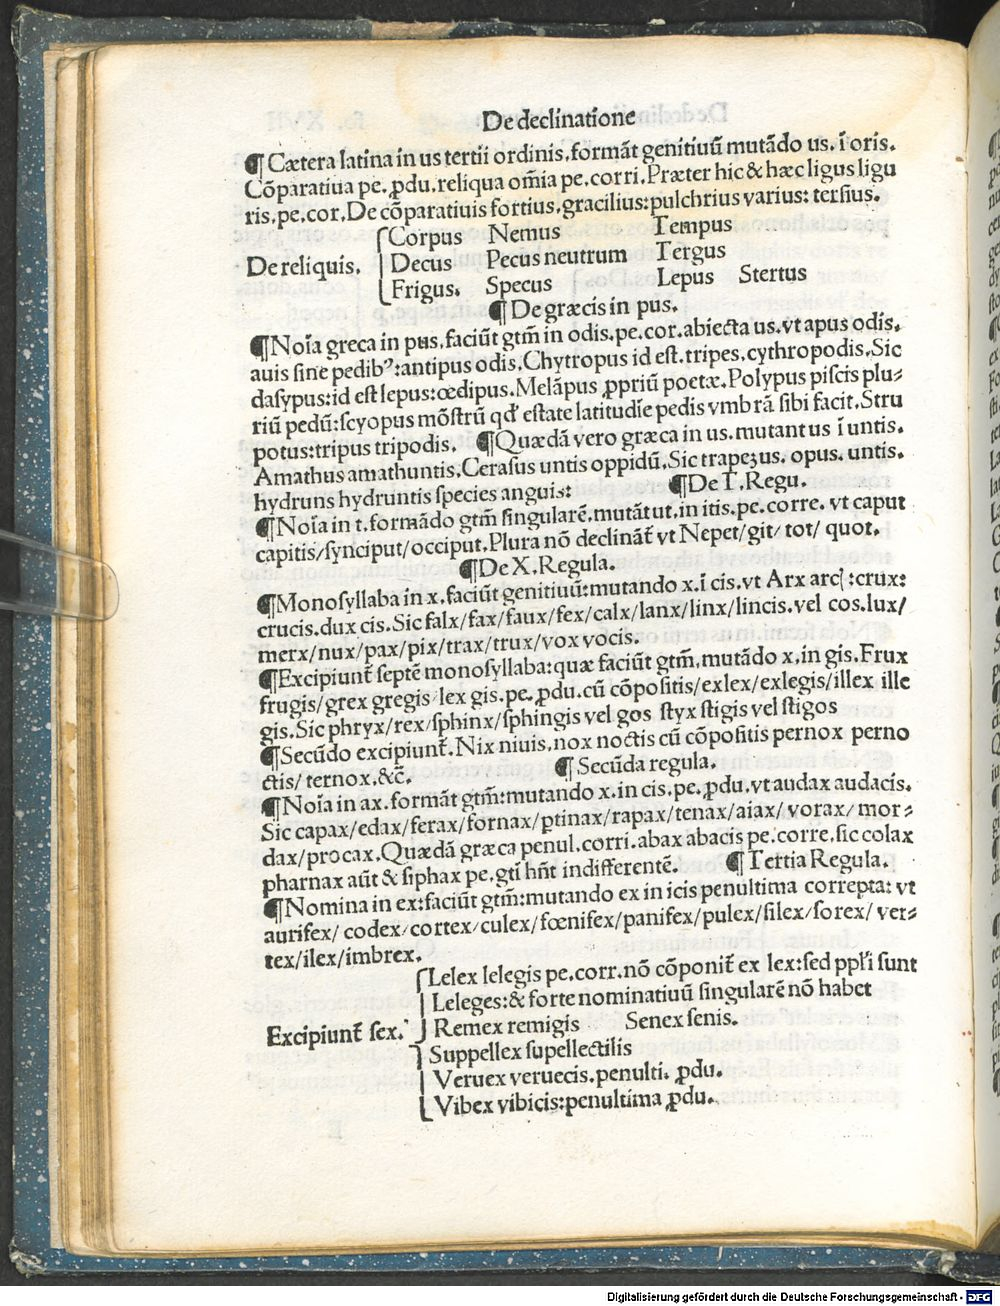 De declinatione
¶ Cætera latina in us tertii ordinis.formãt genitiuũ mutãdo us.ĩ oris.
Cõparatiua pe. ꝓdu.reliqua om̃ia pe.corri.Præter hic & hæc ligus ligu
ris.pe.cor.De cõparatiuis fortius.gracilius:pulchrius varius: tersius.
De reliquis.
Corpus Nemus Tempus
Decus Pecus neutrum Tergus
Frigus. Specus Lepus Stertus
¶ De græcis in pus.
¶Noĩa greca in pus.faciũt gtm̃ in odis.pe.cor.abiecta us.vt apus odis.
auis sine pedibꝰ:antipus odis.Chytropus id est.tripes.cythropodis.Sic
dasypus:id est lepus:œdipus.Melãpus ꝓpriũ poetæ.Polypus piscis plu⸗
riũ pedũ:scyopus mõstrũ qd' estate latitudĩe pedis vmbrã sibi facit.Stru
potus:tripus tripodis. ¶Quædã vero græca in us.mutant us ĩ untis.
Amathus amathuntis.Cerasus untis oppidũ.Sic trapezus. opus. untis.
hydruns hydruntis species anguis: ¶De T.Regu.
¶Noĩa in t.formãdo gtm̃ singularẽ.mutãt ut.in itis.pe.corre. vt caput
capitis/synciput/occiput.Plura nõ declinãt̃ vt Nepet/git/ tot/ quot.
¶De X.Regula.
¶Monosyllaba in x.faciũt genitiuũ:mutando x.ĩ cis.vt Arx arcꝭ:crux:
crucis.dux cis.Sic falx/fax/faux/fex/calx/lanx/linx/lincis.vel cos.lux/
merx/nux/pax/pix/trax/trux/vox vocis.
¶Excipiunt̃ septẽ monosyllaba:quæ faciũt gtm̃.mutãdo x.in gis.Frux
frugis/grex gregis/lex gis.pe. ꝓdu.cũ cõpositis/exlex/exlegis/illex ille
gis.Sic phryx/rex/sphinx/sphingis vel gos styx stigis vel stigos
¶Secũdo excipiunt̃.Nix niuis.nox noctis cũ cõpositis pernox perno
ctis/ ternox.&c̃. ¶ Secũda regula.
¶Noĩa in ax.formãt gtm̃:mutando x.in cis.pe.ꝓdu.vt audax audacis.
Sic capax/edax/ferax/fornax/ꝑtinax/rapax/tenax/aiax/vorax/mor⸗
dax/procax.Quædã græca penul.corri.abax abacis pe.corre.sic colax
pharnax aũt & siphax pe.gtĩ hñt indifferentẽ. ¶Tertia Regula.
¶Nomina in ex:faciũt gtm̃:mutando ex in icis penultima correpta: vt
aurifex/ codex/cortex/culex/fœnifex/panifex/pulex/silex/sorex/ ver⸗
tex/ilex/imbrex.
Excipiunt̃ sex.
Lelex lelegis pe.corr.nõ cõponit̃ ex lex:sed ppl'i sunt
Leleges:& forte nominatiuũ singularẽ nõ habet
Remex remigis Senex senis.
Suppellex supellectilis
Veruex veruecis.penulti. ꝓdu.
Vibex vibicis:penultima ꝓdu.
Digitalisierung gefördert durch die Deutsche Forschungsgemeinschaft - DFG